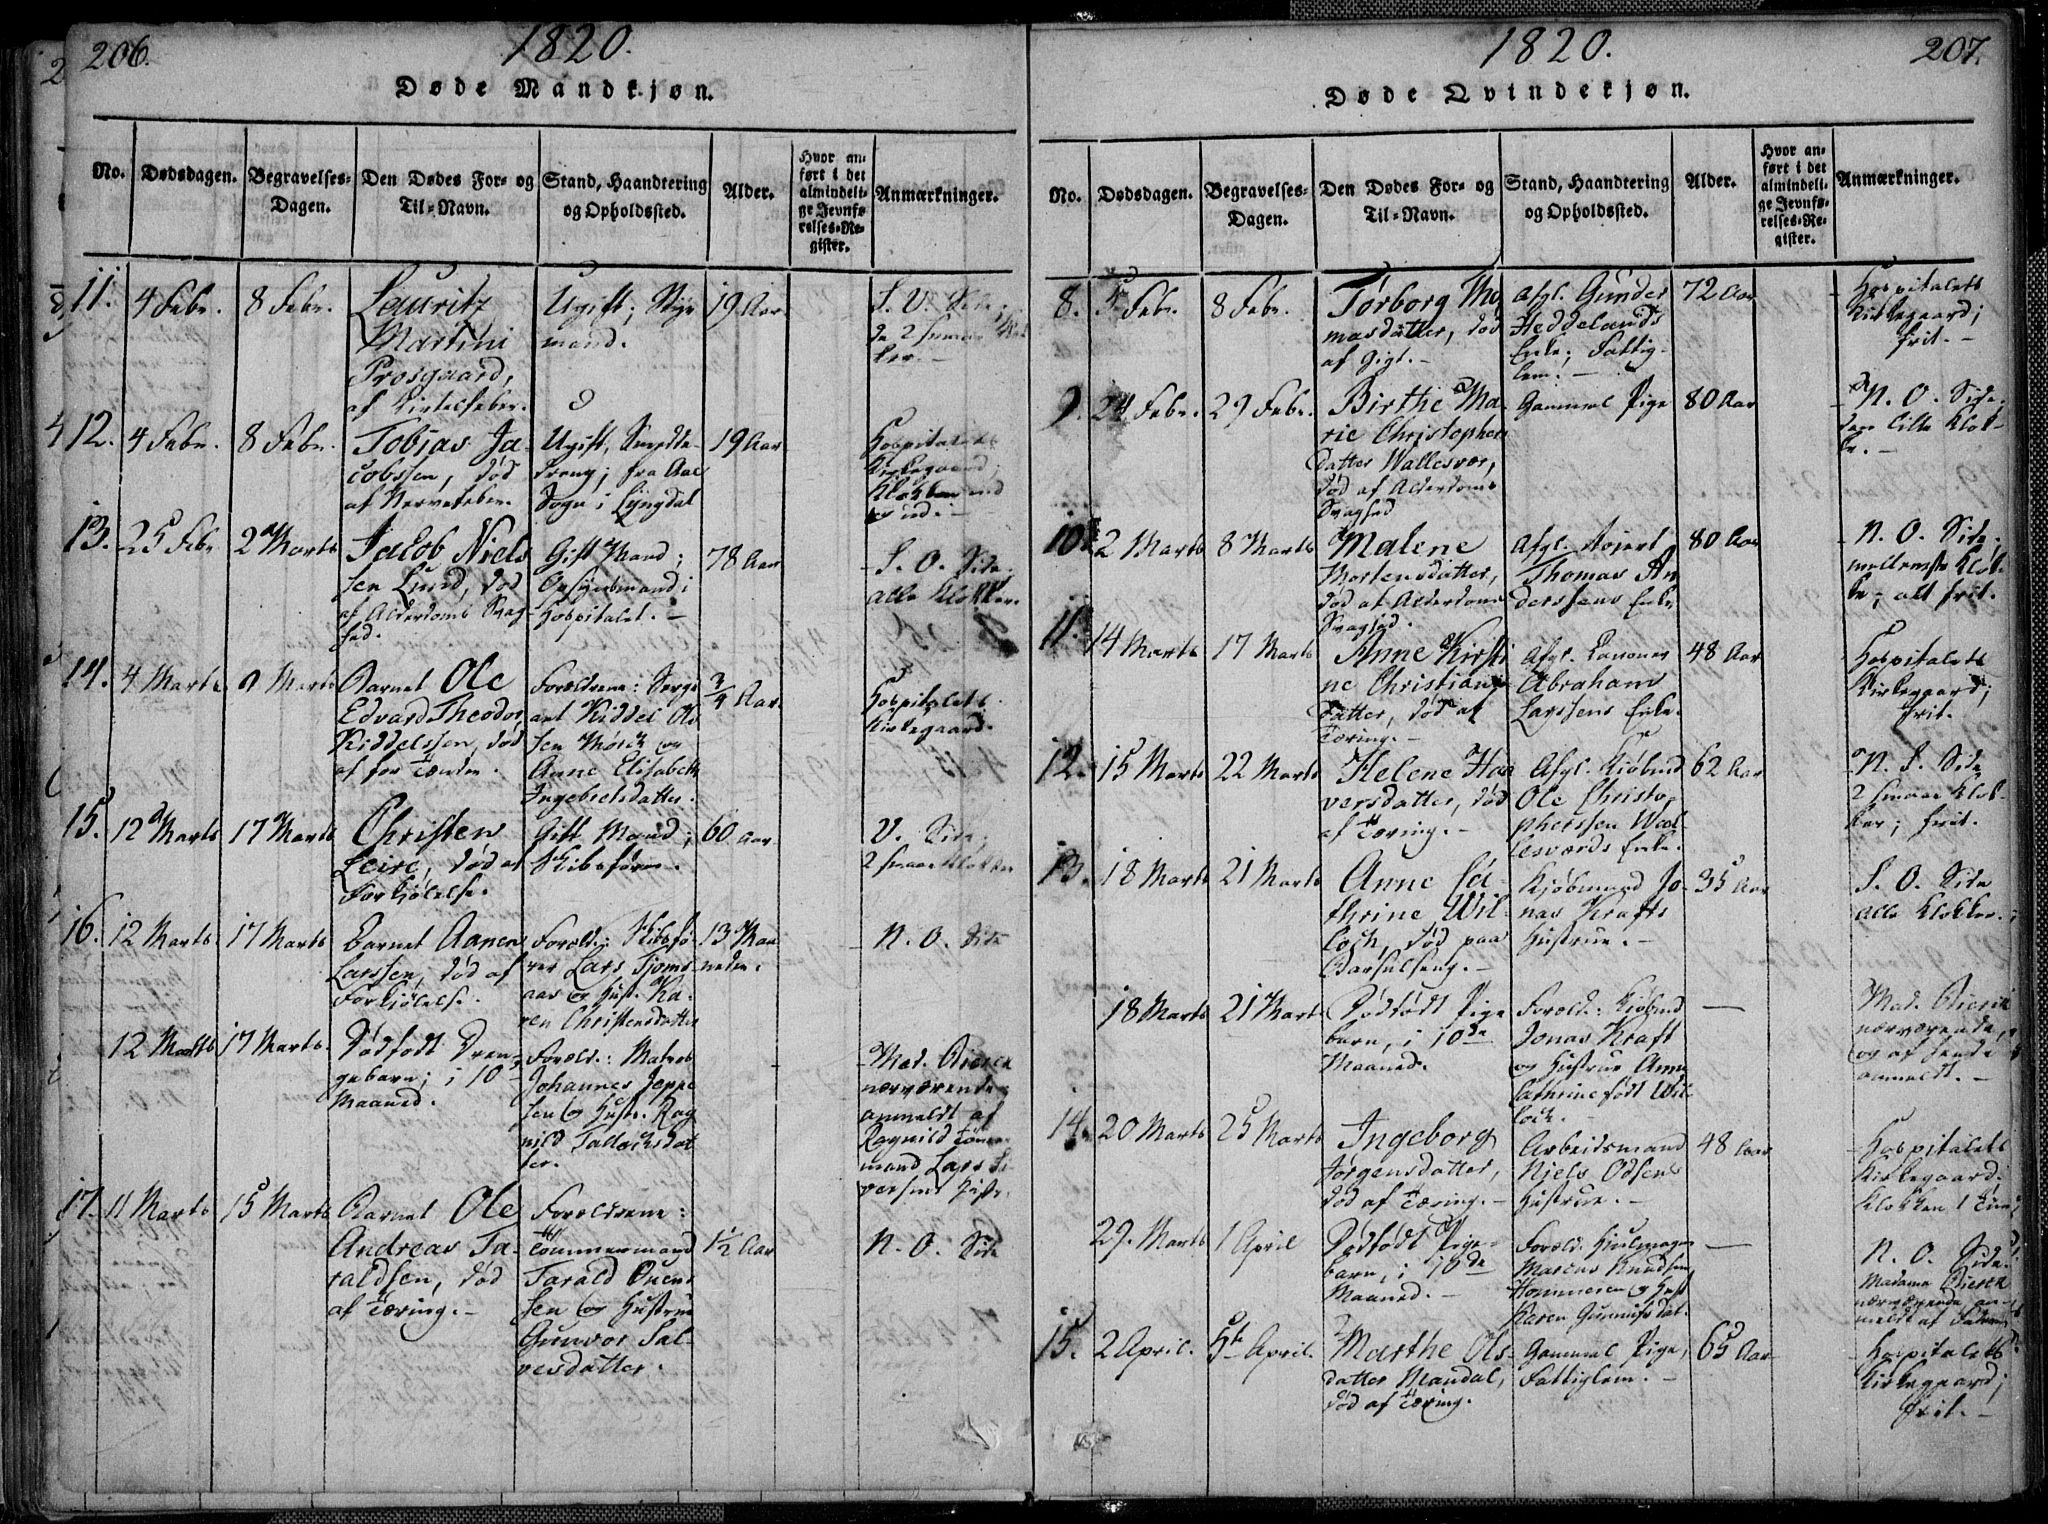 206.
1820.
Døde Mandkjøn.
No.
Dødsdagen.
Begravelses-
Dagen.
Den Dødes For- og
Til-Navn.
Stand, Haandtering
og Opholdssted.
Alder.
Hvor an-
ført i det
almindeli-
ge Jevnfø-
relses-Re-
gister.
Anmærkninger.
11.
4 Febr.
8 Febr.
Lauritz
Martini
Prosgaard,
af
Ugift;
mand.
19 Aar
12.
4 Febr.
8 Febr.
Tobias Ja-
cobssen, død
af Nervefeber.
Ugift,
dreng; fra Aae
Sogn i Lyngdal
19 Aar
Hospitalets
Kirkegaard;
13.
25 Febr
2 Marts
Jacob Niels
sen Lund, død
af Alderdoms Svag-
hed.
Gift Mand;
Opsynsmand i
Hospitalet. -
78 Aar
S. O. Side,
alle Klokker.
14.
4 Marts
9 Marts
Barnet Ole
Edvard Theodor
Kiddelssen, død
af for Tænder.
Forældrene: Serge
ant Kiddel Ols
sen Mørch og
Anne Elisabeth
Ingebretsdatter.
3/4 Aar.
Hospitalets
Kirkegaard.
15.
12 Marts
17 Marts
Christen
Leire, død af
Forkjølelse.
Gift Mand;
Skibsfører.
60 Aar
V. Side,
2 smaa Klokker
16.
12 Marts
17 Marts
Barnet Aanen
Larssen, død af
Forkjølelse.
Foræld.: Skibsfø-
rer Lars Tjoms-
aas og Hust. Ka-
ren Christensdatter
13 Maa
neder.
N. O. Side
12 Marts
17 Marts.
Dødfødt Dren-
gebarn; i 10
Maaned.
Foræld.: Matros
Johannes Jeppe
sen og Hustr. Rag
nild Tallachsdat
ter.
Mad. Bierck
nærværende,
anmeldt af
Ragnild Tømmer
mand Lars Si-
versens Hustr.
17.
11 Marts
15 Marts
Barnet Ole
Andreas Ta-
raldsen, død
af Tæring. -
Forældrene:
Tømmermand
Tarald Onens
sen og Hustrue
Gunvor Sal-
vesdatter.
1 1/2 Aar
N. O. Side
1820.
207.
Døde Qvindekjøn.
No.
Dødsdagen.
Begravelses-
Dagen.
Den Dødes For- og
Til-Navn.
Stand, Haandtering
og Opholdssted.
Alder.
Hvor an-
ført i det
almindeli-
ge Jevnfø-
relses-Re-
gister.
Anmærkninger.
8.
5 Febr.
8 Febr.
Torborg Tho
masdatter, død
af Gigt. -
Afgl. Gunder
Heddelands
Enke; Fattig-
lem. -
72 Aar
Hospitalets
Kirkegaard;
frit. -
9.
24 Febr.
29 Febr.
Birthe Ma-
rie Christophers
datter Wallesvær,
død af Alderdoms
Svaghed
Gammel Pige
80 Aar
N. O. Side,
den lille Klok-
ke. -
10.
2 Marts
8 Marts
Malene
Mortensdatter,
død af Alderdoms
Svaghed.
Afgl.
Thomas An
derssens Enke
80 Aar
N. O. Side,
mellemste Klok-
ke; alt frit.
11.
14 Marts
17 Marts
Anne Kirsti
ne Christians
datter, død af
Tæring. -
Afgl.
Abraham
Larssens Enke.
48 Aar
Hospitalets
Kirkegaard;
frit.
12.
15 Marts
22 Marts
Helene Haa
versdatter, død
af Tæring. -
Afgl. Kjøbmd
Ole Christo-
pherssen Wal-
lesværds Enke.
62 Aar
N. S. Side
2 smaa Klok-
ker; frit.
13.
18 Marts
21 Marts
Anne Ca-
thrine Wil-
loch, død paa
Barselseng. -
Kjøbmand Jo-
nas Krafts
Hustrue. -
35 Aar
S. O. Side
alle Klokker.
18 Marts
21 Marts
Dødfødt Pige
barn, i 10de
Maaned.
Foræld: Kjøbmd
Jonas Kraft
og Hustrue Anne
Cathrine født Wil-
loch.
-
Mad. Bierck
nærværende,
og af hende
anmeldt. -
14.
20 Marts
25 Marts
Ingeborg
Jørgensdatter,
død af Tæring. -
Arbeidsmand
Niels Odsens
Hustrue. -
48 Aar
Hospitalets
Kirkegaard;
Klokken 1
29. Marts
1 April
Dødfødt Pige-
barn, i 10de
Maaned. -
Foræld: Hiulmager
Marcus Knudsen
Hommeren og Hust
Karen Gunnufsdat.
-
N. O. Side.
Madame Bierck
nærværende, an-
meldt af Faderen
15.
2 April.
5te April.
Marthe Ols-
datter Mandal,
død af Tæring.
Gammel Pige,
Fattiglem. -
65 Aar
Hospitalets
Kirkegaard;
frit. -